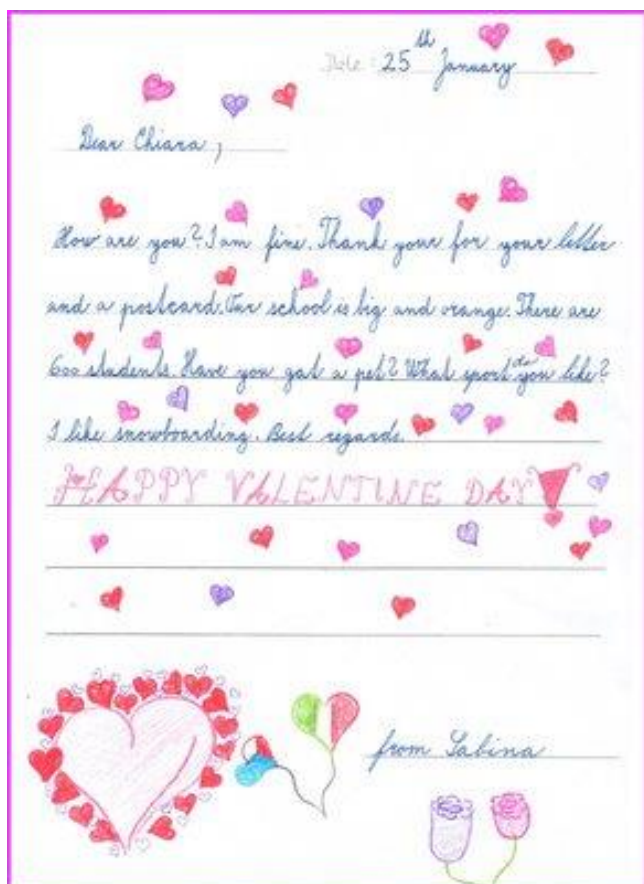 Date: 25th January
Dear Chiara,
How are you? I am fine. Thank your for your letter
and a postcard. Our school is big and orange. There are
600 students. Have you gat a pet? What sport do you like?
I like snowboarding. Best regards.
HAPPY VALENTINE DAY!
from Sabina